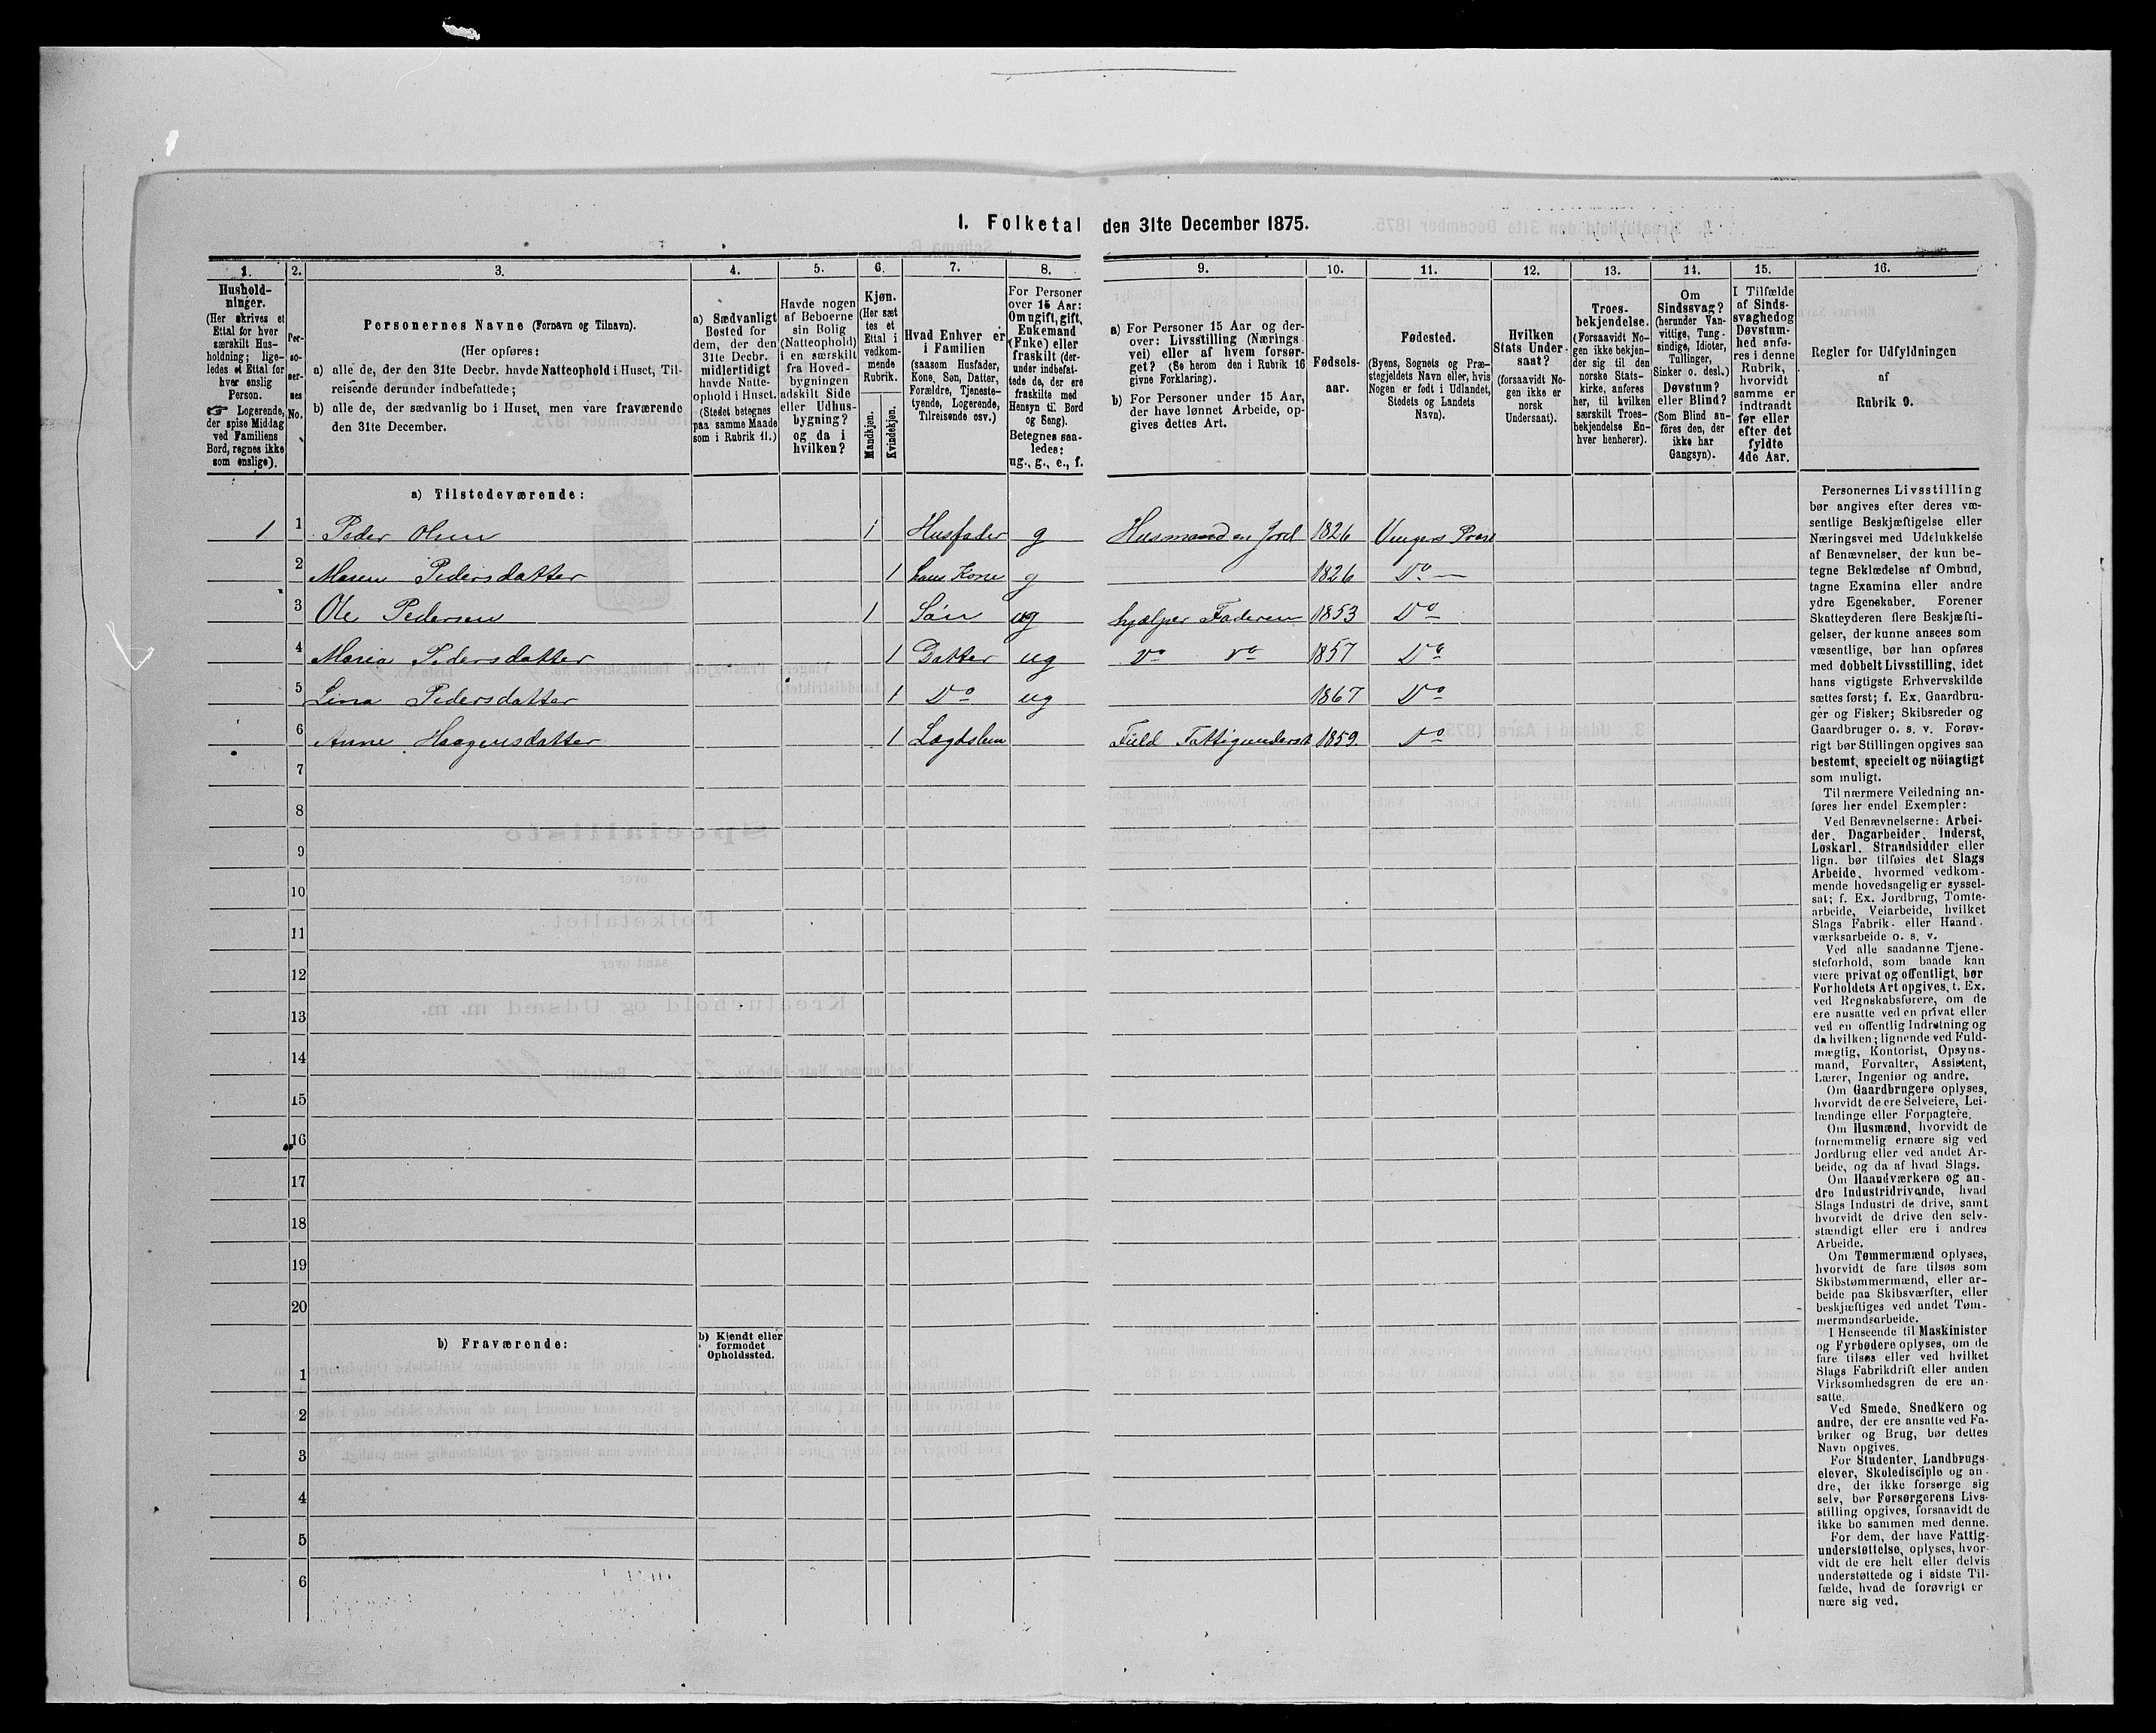 1. Folketal den 31te December 1875.
1.
Hushold-
ninger.
(Her skrives et
Ettal for hver
særskilt Hus-
holdning; lige-
ledes et Ettal for
hver enslig
Person.
☞ Logerende,
der spise Middag
ved Familiens
Bord, regnes ikke
som enslige).
2.
Per-
so-
ner-
nes
No.
3.
Personernes Navne (Fornavn og Tilnavn).
(Her opføres:
a) alle de, der den 31te Decbr. havde Natteophold i Huset, Til-
reisende derunder indbefattede;
b) alle de, der sædvanlig bo i Huset, men vare fraværende
den 31te December.
4.
a) Sædvanligt
Bosted for
dem, der den
31te Decbr.
midlertidigt
havde Natte-
ophold i Huset.
(Stedet betegnes
paa samme Maade
som i Rubrik 11.)
5.
Havde nogen
af Beboerne
sin Bolig
(Natteophold)
i en særskilt
fra Hoved-
bygningen
adskilt Side
eller Udhus-
bygning?
og da i
hvilken?
6.
Kjøn.
(Her sæt
tes et
Ettal i
vedkom-
mende
Rubrik.
Mandkjøn.
Kvindekjøn.
7.
Hvad Enhver er
i Familien
(saasom Husfader,
Kone, Søn, Datter,
Forældre, Tjeneste-
tyende, Logerende,
Tilreisende osv.)
8.
For Personer
over 15 Aar:
Om ugift, gift,
Enkemand
(Enke) eller
fraskilt (der-
under indbefat-
tede de, der ere
fraskilte med
Hensyn til Bord
og Seng).
Betegnes saa-
ledes:
ug., g., e., f.
9.
a) For Personer 15 Aar og der-
over: Livsstilling (Nærings
vei) eller af hvem forsør-
get? (Se herom den i Rubrik 16
givne Forklaring).
b) For Personer under 15 Aar,
der have lønnet Arbeide, op-
gives dettes Art.
10.
Fødsels-
aar.
11.
Fødested.
(Byens, Sognets og Præ-
stegjeldets Navn eller, hvis
Nogen er født i Udlandet,
Stedets og Landets
Navn).
12.
Hvilken
Stats Under
saat?
(forsaavidt No-
gen ikke er
norsk
Undersaat).
13.
Troes-
bekjendelse.
(Forsaavidt No-
gen ikke bekjen-
der sig til den
norske Stats-
kirke, anføres
her, til hvilken
særskilt Troes-
bekjendelse En-
hver henhører).
14.
Om
Sindssvag?
(herunder Van-
vittige, Tung-
sindige, Idioter,
Tullinger,
Sinker o. desl.)
Døvstum?
eller Blind?
(Som Blind an-
føres den, der
ikke har
Gangsyn).
15.
I Tilfælde
af Sinds-
svaghed og
Døvstum-
hed anfø-
res i denne
Rubrik,
hvorvidt
samme er
indtraadt
før eller
efter det
fyldte
4de Aar.
16.
Regler for Udfyldningen
af
Rubrik 9.
a) Tilstedeværende:
1 1 Peder Olsen 1 Husfader g Husmand m Jord 1826 Vingers Præst
2 Maren Pedersdatter 1 hans Kone g 1826 Do —
3 Ole Pedersen 1 Søn ug hjælper Faderen 1853 Do
4 Maria Pedersdatter 1 Datter ug Do Do 1857 Do
5 Lina Pedersdatter 1 Do ug 1867 Do
6 Anne Haagensdatter 1 Lægdslem Fuld Fattigunderst 1859. Do
7
8
9
10
11
12
13
14
15
16
17
18
19
20
b) Fraværende:
b) Kjendt eller
formodet
Opholdssted.
1
2
3
4
5
6
Personernes Livsstilling
bør angives efter deres væ-
sentlige Beskjæftigelse eller
Næringsvei med Udelukkelse
af Benævnelser, der kun be-
tegne Beklædelse af Ombud,
tagne Examina eller andre
ydre Egenskaber. Forener
Skatteyderen flere Beskjæfti-
gelser, der kunne ansees som
væsentlige, bør han opføres
med dobbelt Livsstilling, idet
hans vigtigste Erhvervskilde
sættes først; f. Ex. Gaardbru-
ger og Fisker; Skibsreder og
Gaardbruger o. s. v. Forøv-
rigt bør Stillingen opgives saa
bestemt, specielt og nöiagtigt
som muligt.
Til nærmere Veiledning an-
føres her endel Exempler:
Ved Benævnelserne: Arbei-
der, Dagarbeider, Inderst,
Løskarl, Strandsidder eller
lign. bør tilføies det Slags
Arbeide, hvormed vedkom-
mende hovedsagelig er syssel-
sat; f. Ex. Jordbrug, Tomte-
arbeide, Veiarbeide, hvilket
Slags Fabrik- eller Haand-
værksarbeide o. s. v.
Ved alle saadanne Tjene-
steforhold, som baade kan
være privat og offentligt, bør
Forholdets Art opgives, t. Ex.
ved Regnskabsførere, om de
ere ansatte ved en privat eller
ved en offentlig Indretning og
da hvilken; lignende ved Fuld-
mægtig, Kontorist, Opsyns-
mand, Forvalter, Assistent,
Lærer, Ingeniør og andre.
Om Gaardbrugere oplyses,
hvorvidt de ere Selveiere, Lei-
lændinge eller Forpagtere.
Om Husmænd, hvorvidt de
fornemmelig ernære sig ved
Jordbrug eller ved andet Ar-
beide, og da af hvad Slags.
Om Haandværkere og an-
dre Industridrivende, hvad
Slags Industri de drive, samt
hvorvidt de drive den selv-
stændigt eller ere i andres
Arbeide.
Om Tømmermænd oplyses,
hvorvidt de fare tilsøs som
Skibstømmermænd, eller ar-
beide paa Skibsværfter, eller
beskjæftiges ved andet Tøm-
mermandsarbeide.
I Henseende til Maskinister
og Fyrbødere oplyses, om de
fare tilsøs eller ved hvilket
Slags Fabrikdrift eller anden
Virksomhedsgren de ere an-
satte.
Ved Smede, Snedkere og
andre, der ere ansatte ved Fa-
briker og Brug, bør dettes
Navn opgives.
For Studenter, Landbrugs-
elever, Skoledisciple og an-
dre, der ikke forsørge sig
selv, bør Forsørgerens Livs-
stilling opgives, forsaavidt de
ikke bo sammen med denne.
For dem, der have Fattig-
understøttelse, oplyses, hvor-
vidt de ere helt eller delvis
understøttede og i sidste Til-
fælde, hvad de forøvrigt er
nære sig ved.